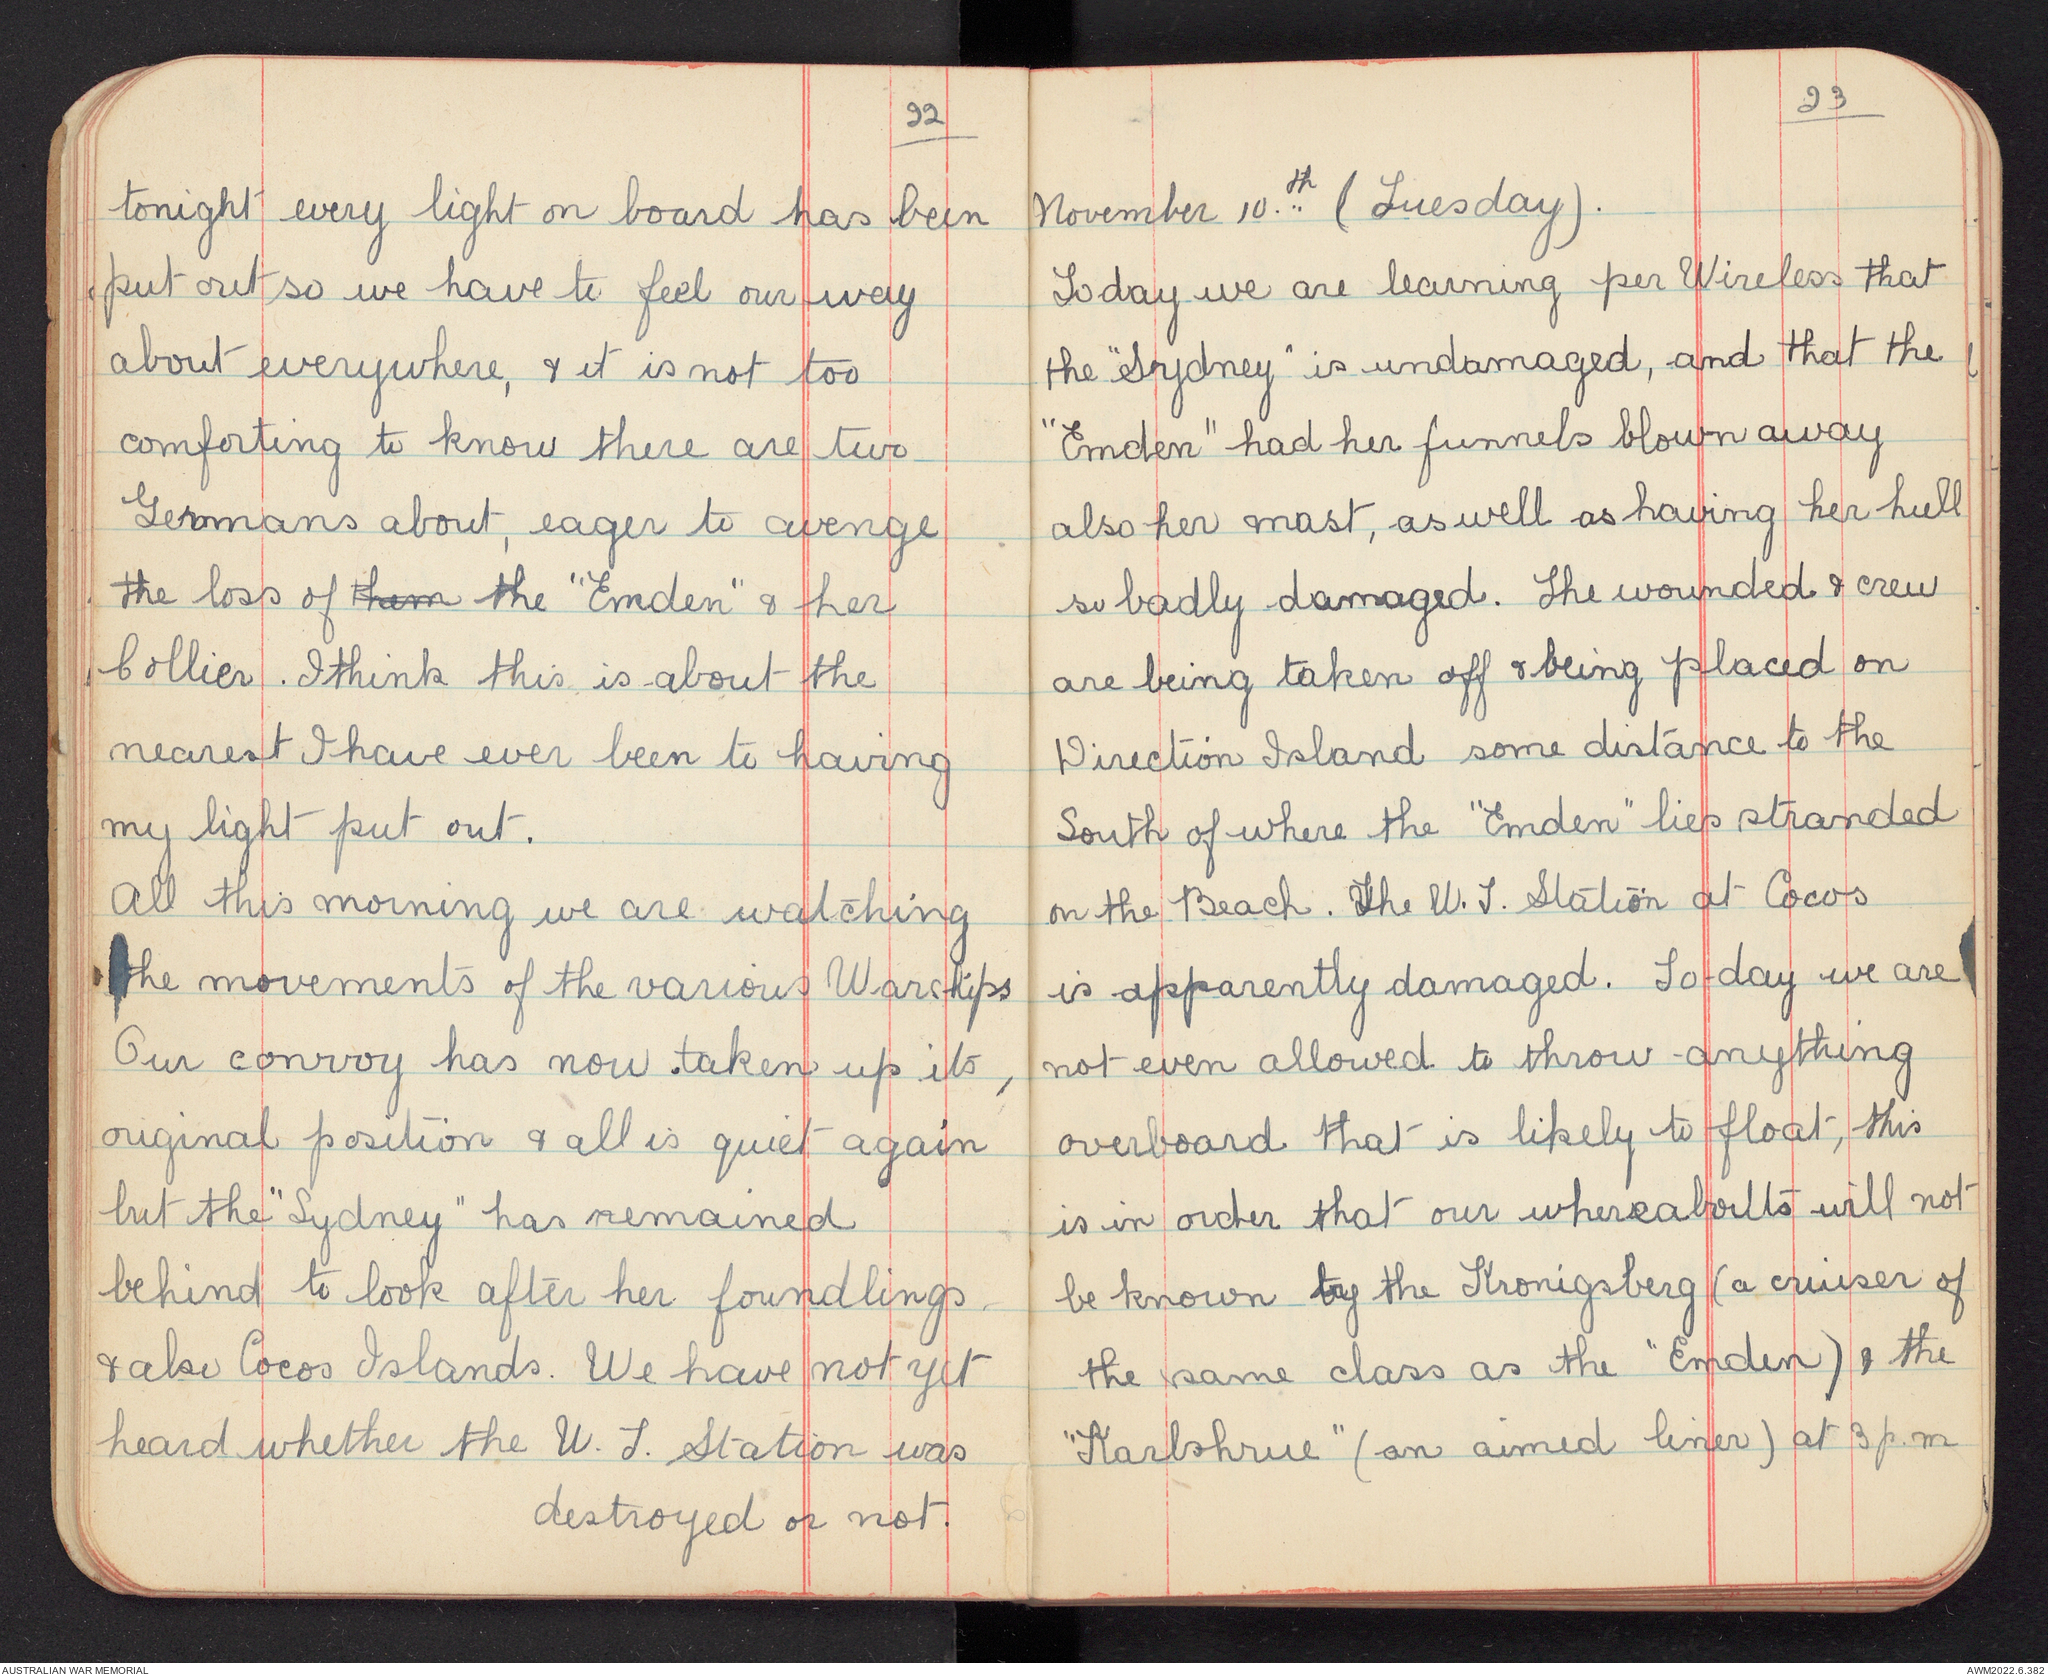 22
tonight every light on board has been
put out so we have to feel our way
about everywhere, & it is not too
comforting to know there are two
Germans about, eager to avenge
the loss of them the "Emden" & her
Collier. I think this is about the
nearest I have ever been to having
my light put out.
All this morning we are watching
the movements of the various Warships
Our convoy has now taken up its,
original position & all is quiet again
but the "Sydney" has remained
behind to look after her foundlings
& also Cocos Islands. We have not yet
heard whether the W. T. Station was
destroyed or not.
23
November 10.th (Tuesday).
Today we are learning per Wireless that
the "Sydney" is undamaged, and that the
"Emden" had her funnels blown away
also her mast, as well as having her hull
so badly damaged. The wounded & crew
are being taken off & being placed on
Direction Island some distance to the
South of where the "Emden" lies stranded
on the Beach. The W. T. Station at Cocos
is apparently damaged. To-day we are
not even allowed to throw anything
overboard that is likely to float, this
is in order that our whereabouts will not
be known by the Kronigsberg (a cruiser of
the same class as the "Emden) & the
"Karlshrue" (an aimed liner) at 3 p.m
AUSTRALIAN WAR MEMORIAL
AWM2022.6.382